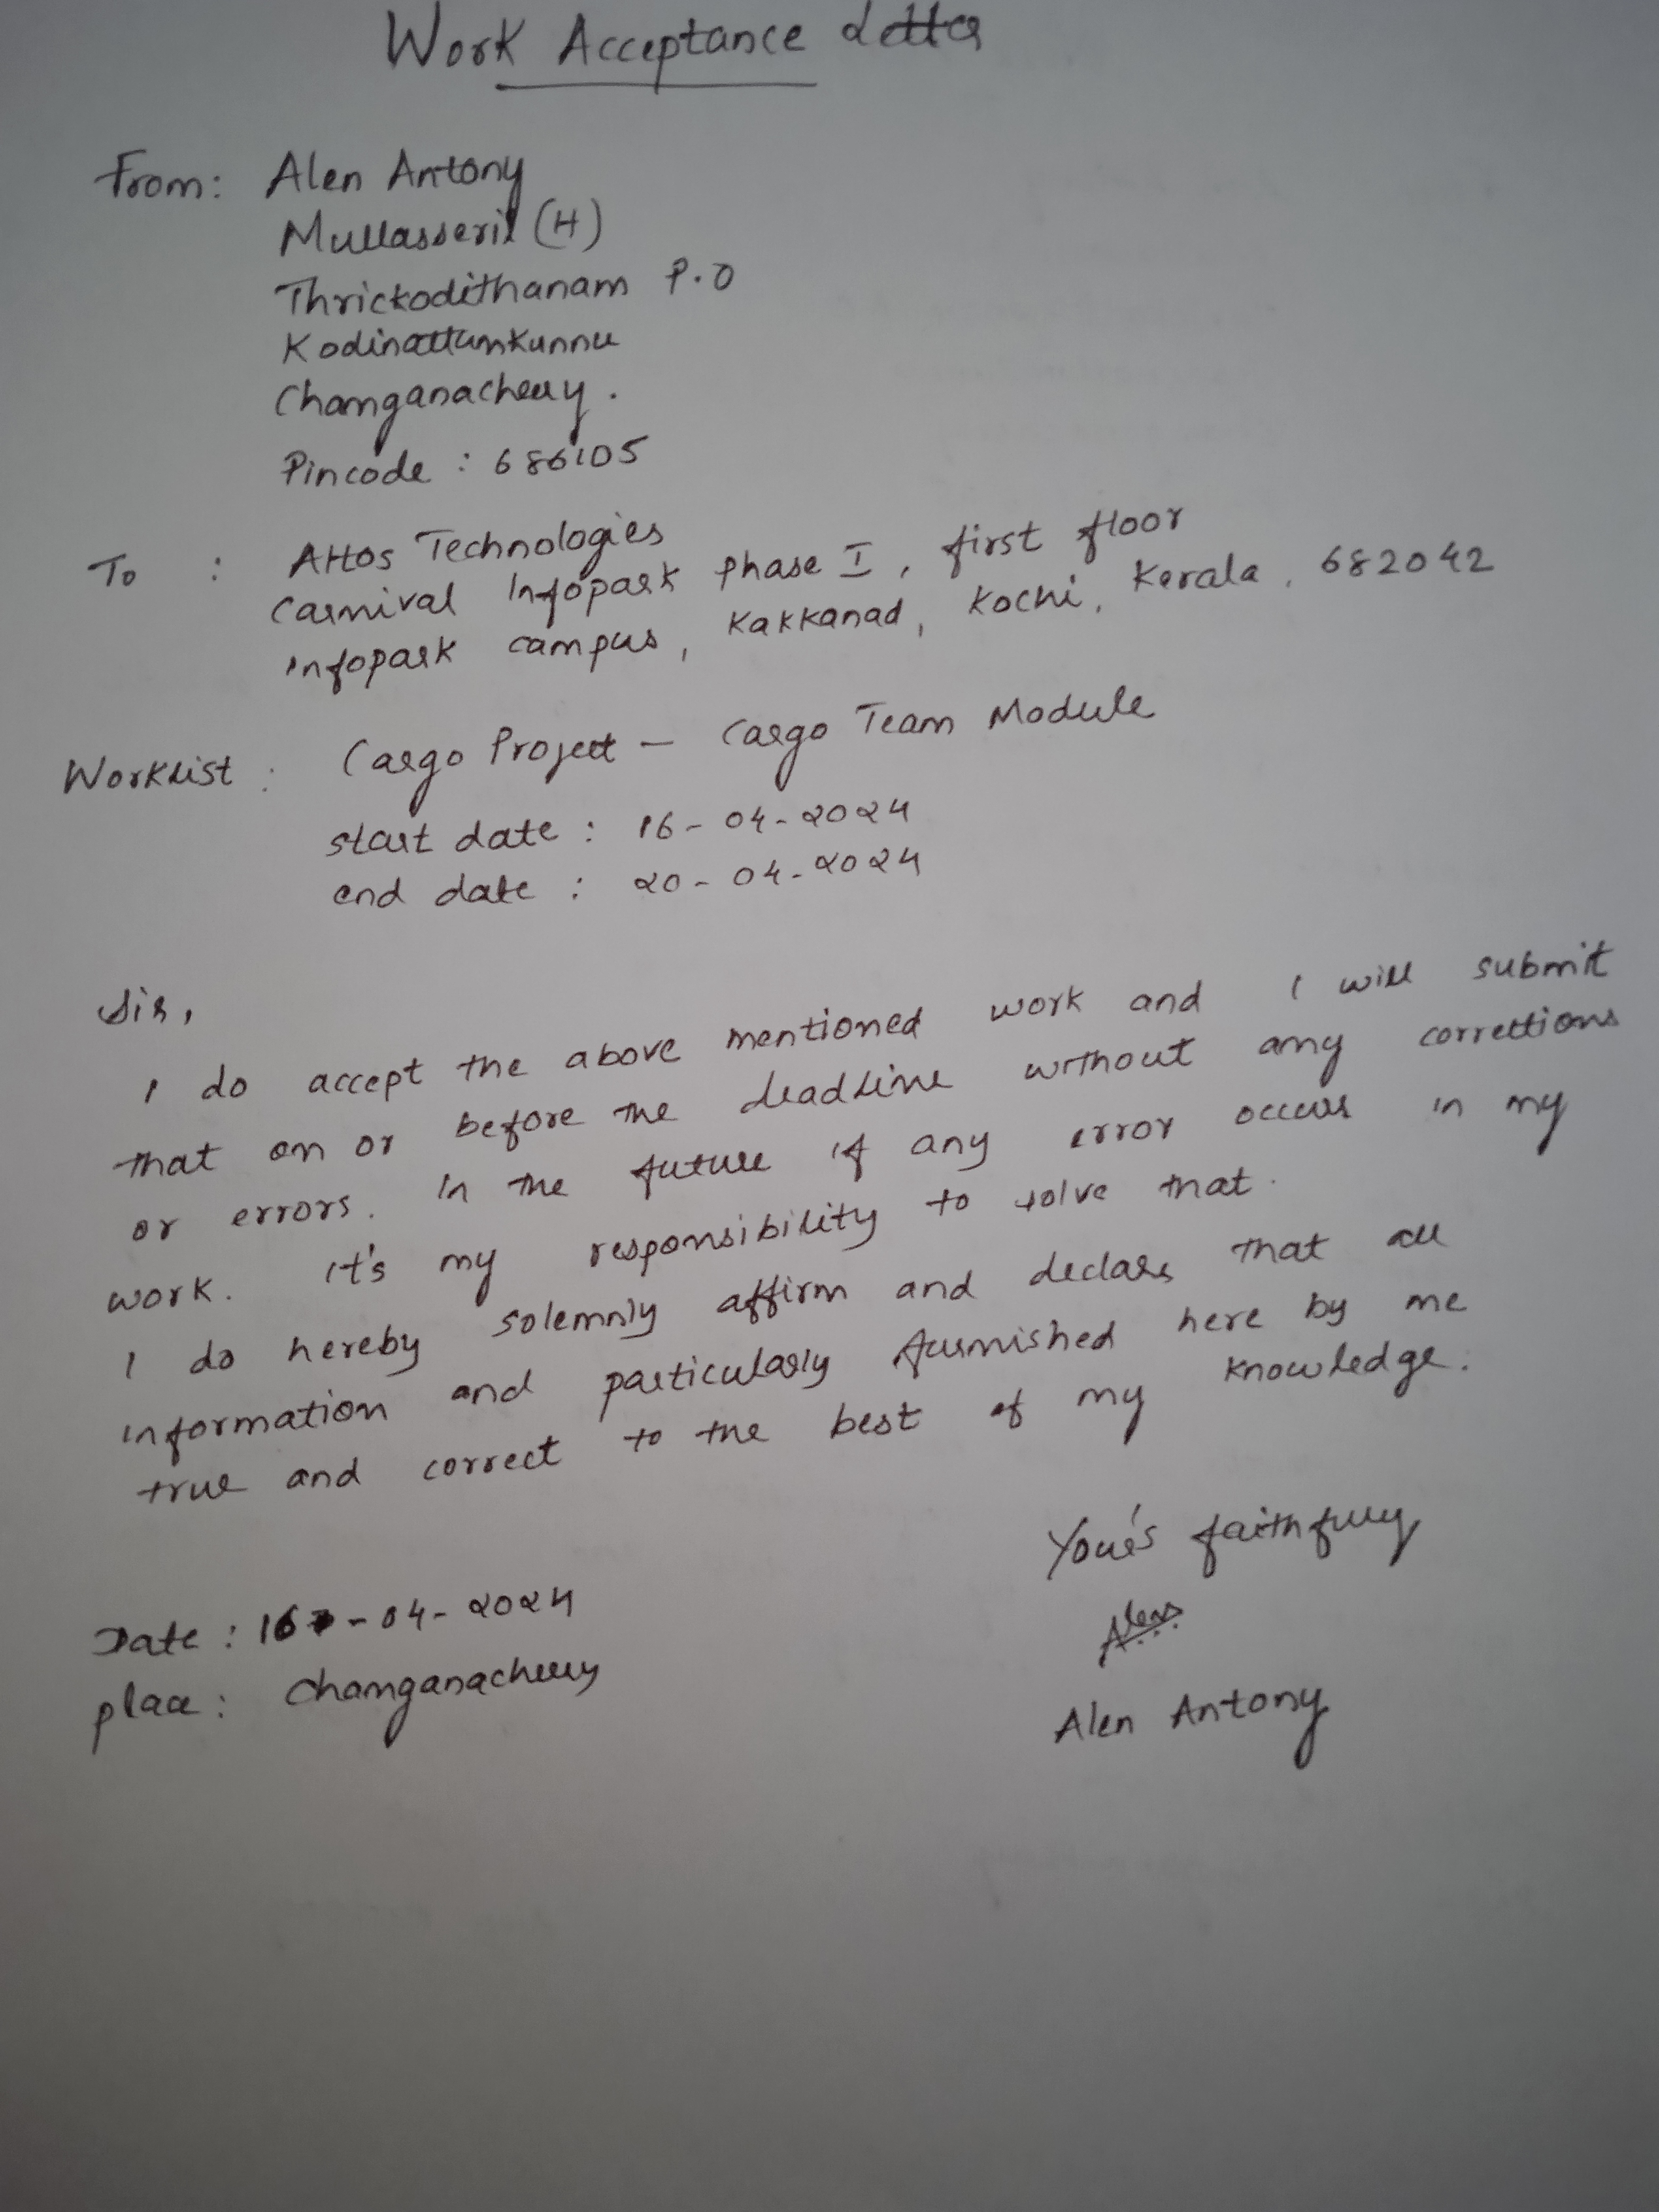 Work Acceptance Letter
From: Alen Antony
Mullasseril (H)
Thrickodithanam P.O
Kodinattumkunnu
Changanacherry.
Pincode : 686105
To : Attos Technologies
Carnival Infopark phase I, first floor
infopark campus, Kakkanad, Kochi, Kerala, 682042
Worklist : Cargo Project - Cargo Team Module
start date : 16-04-2024
end date : 20-04-2024
Sir,
I do accept the above mentioned work and I will submit
that on or before the deadline without any corrections
or errors. In the future if any error occurs in my
work. it's my responsibility to solve that.
I do hereby solemnly affirm and declare that all
information and particularly furnished here by me
true and correct to the best of my knowledge.
Your's faithfully
Alen
Alen Antony
Date : 16-04-2024
place : Changanacherry